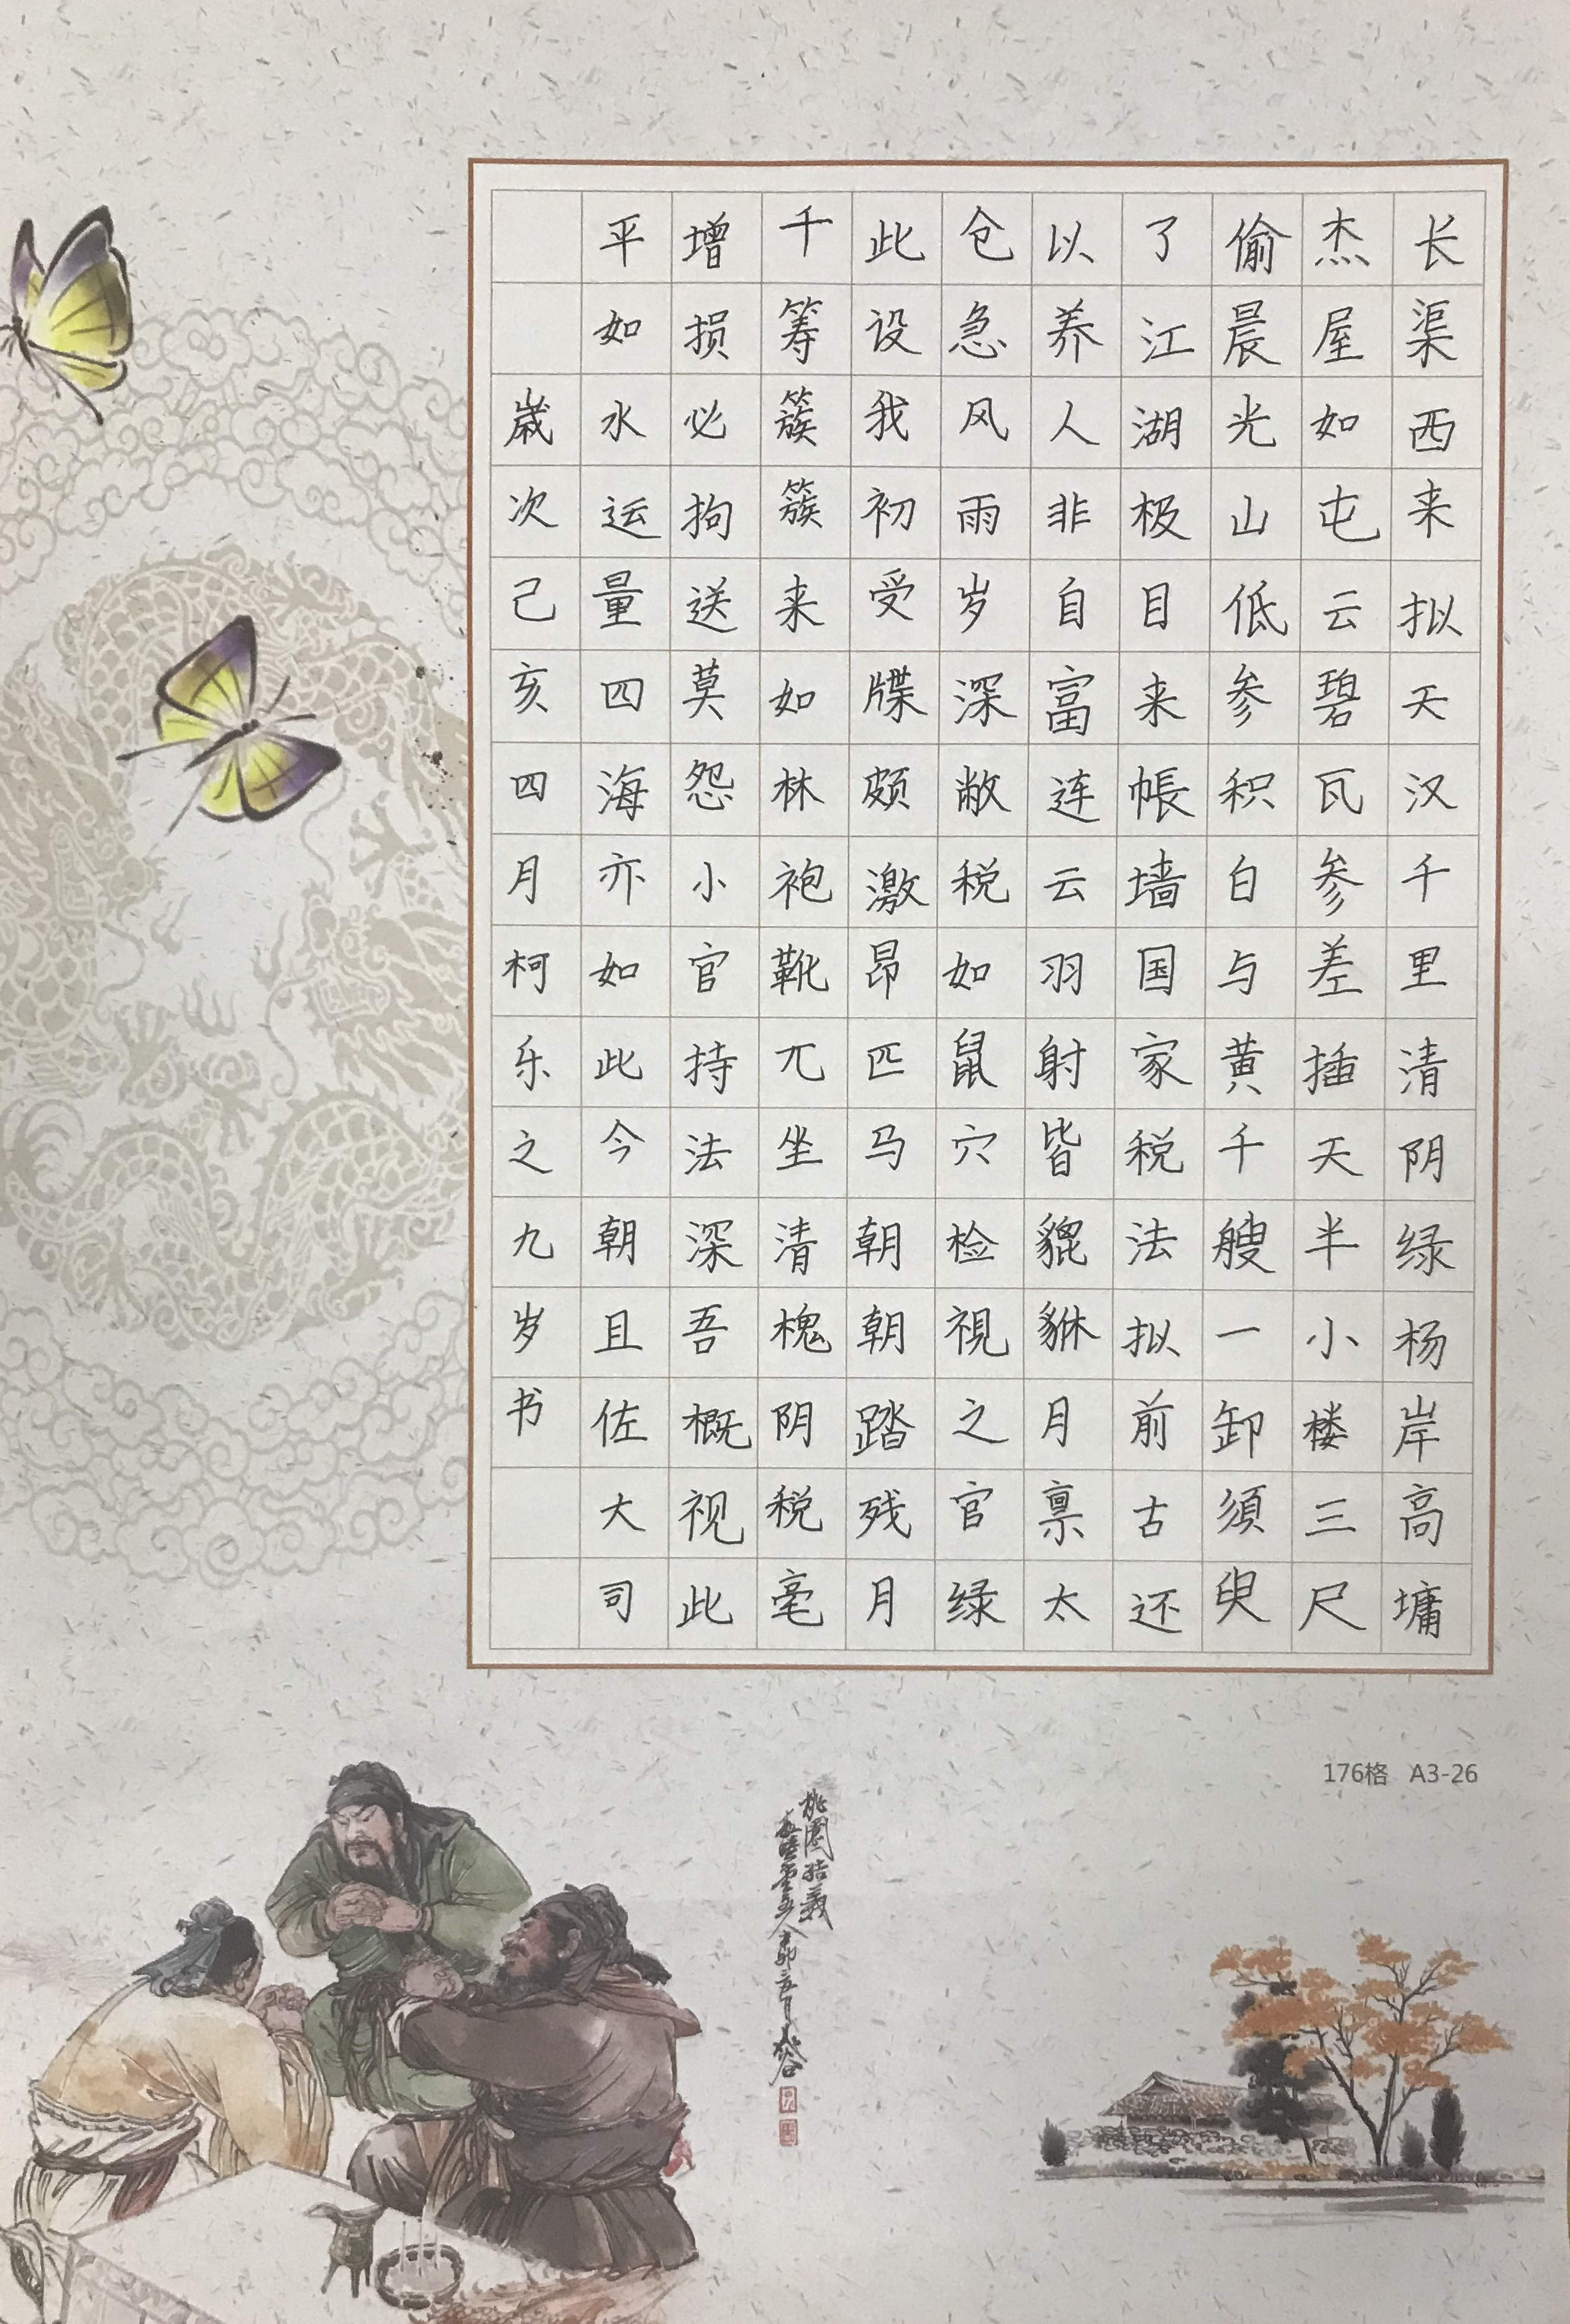 长渠西来拟天汉千里清阴绿杨岸高墉
杰屋如屯云碧瓦参差插天半小楼三尺
偷晨光山低参积白与黄千艘一卸须臾
了江湖极目来帳墙国家税法拟前古还
以养人非自富连云羽射皆貔貅月禀太
仓急风雨岁深敝税如鼠穴检視之官绿
此设我初受牒颇激昂匹马朝朝踏残月
千筹簇簇来如林袍靴兀坐清槐阴税毫
增损必拘送莫怨小官持法深吾概视此
平如水运量四海亦如此今朝且佐大司
歳次己亥四月柯乐之九岁书
176格 A3-26
桃園结義